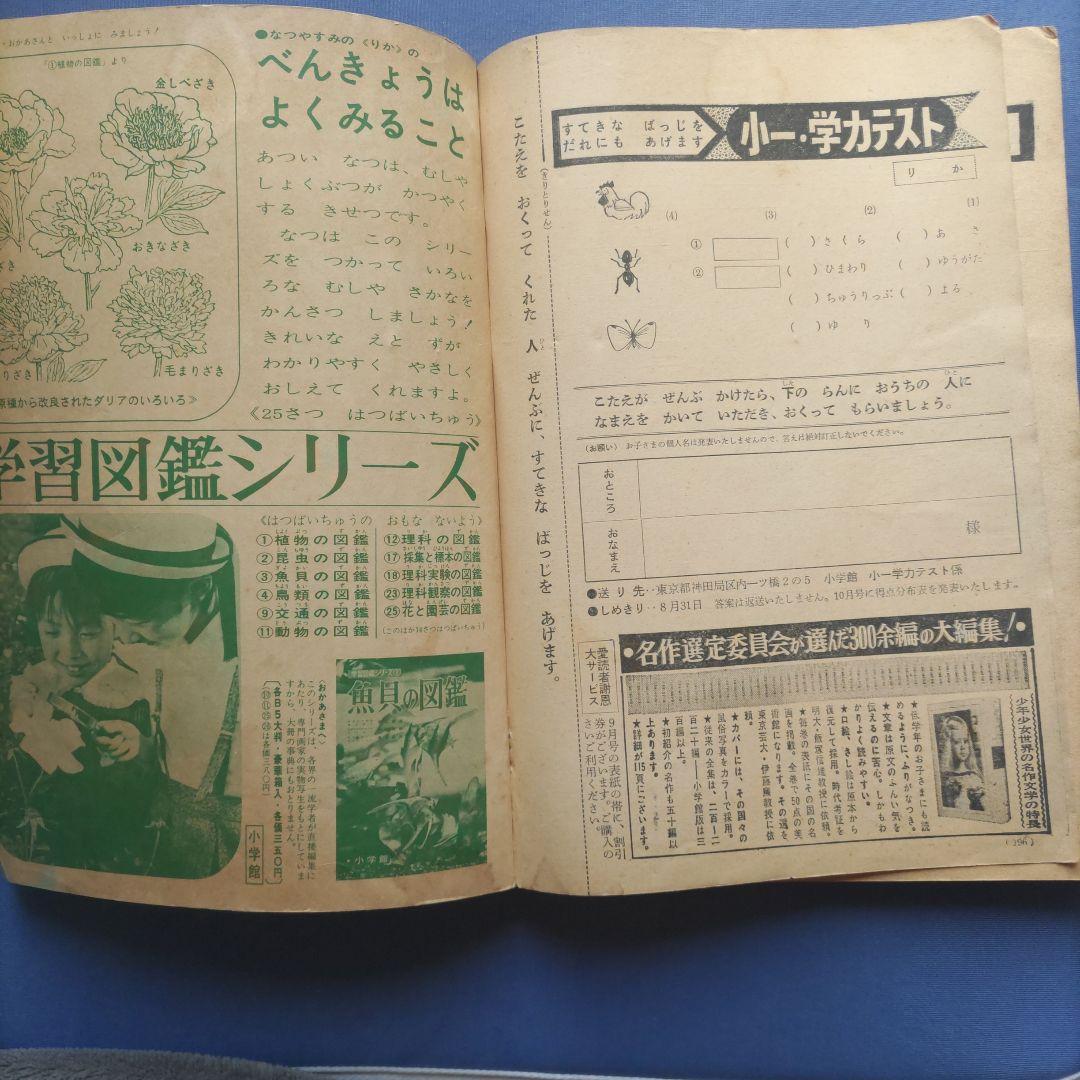 ・おかあさんと いっしょに みましょう!
「①植物の図鑑」より
金しべざき
おきなざき
毛まりざき
原種から改良されたダリアのいろいろ》
●なつやすみの《りか》の
べんきょうは
よくみること
あつい なつは、むしや
しょくぶつが かつやく
する きせつです。
なつは この シリー
ズを つかって いろい
ろな むしや さかなを
かんさつ しましょう!
きれいな えと ずが
わかりやすく やさしく
おしえて くれますよ。
《25さつ はつばいちゅう》
学習図鑑シリーズ
《はつばいちゅうの おもな ないよう》
①植物の図鑑
②昆虫の図鑑
③魚貝の図鑑
④鳥類の図鑑
⑨交通の図鑑
⑪動物の図鑑
⑫理科の図鑑
⑰採集と標本の図鑑
⑱理科実験の図鑑
㉓理科観察の図鑑
㉕花と園芸の図鑑
(このほか14さつはつばいちゅう)
魚貝の図鑑
・小学館
《おかあさまへ》
このシリーズは、各界の一流学者が直接編集に
あたり、専門画家の実物写生をもとにしていま
すから、大冊の事典にもおとりません。
各B5大判・豪華箱入・各価三五〇円
小学館
こたえを おくって くれた 人 ぜんぶに、すてきな ばっじを あげます。
(きりとりせん)
すてきな ばっじを
だれにも あげます
小一・学力テスト
りか
(1)
( )あさ
( )ゆうがた
( )よる
(2)
( )さくら
( )ひまわり
( )ちゅうりっぷ
( )ゆり
(3)
①
②
(4)
こたえが ぜんぶ かけたら、下の らんに おうちの 人に
なまえを かいて いただき、おくって もらいましょう。
(お願い) お子さまの個人名は発表いたしませんので、答えは絶対訂正しないでください。
おところ
おなまえ
様
●送り先‥東京都神田局区内一ツ橋2の5 小学館 小一学力テスト係
●しめきり‥8月31日 答案は返送いたしません。10月号に得点分布表を発表いたします。
・名作選定委員会が選んだ300余編の大編集!・
少年少女世界の名作文学の特長
★低学年のお子さまにも読
めるように、ふりがなつき。
★文章は原文のふんい気を
伝えるのに苦心。しかもわ
かりよく読みやすい。
★口絵、さし絵は原本から
復元して採用。時代考証を
明大・飯塚信雄教授に依頼。
★毎巻の表紙にその国の名
画を掲載。全巻で50点の美
術館になります。その選を
東京芸大・伊藤廉教授に依
頼。
★カバーには、その国々の
風俗写真をカラーで採用。
★従来の全集は、二百―二
百二十編―小学館版は三
百編以上。
★初紹介の名作も五十編以
上あります。
★詳細が115頁にございます。
愛読者謝恩
大サービス
9月号の表紙の帯に、割引
券がございます。ご購入の
さいご利用ください。
(196)